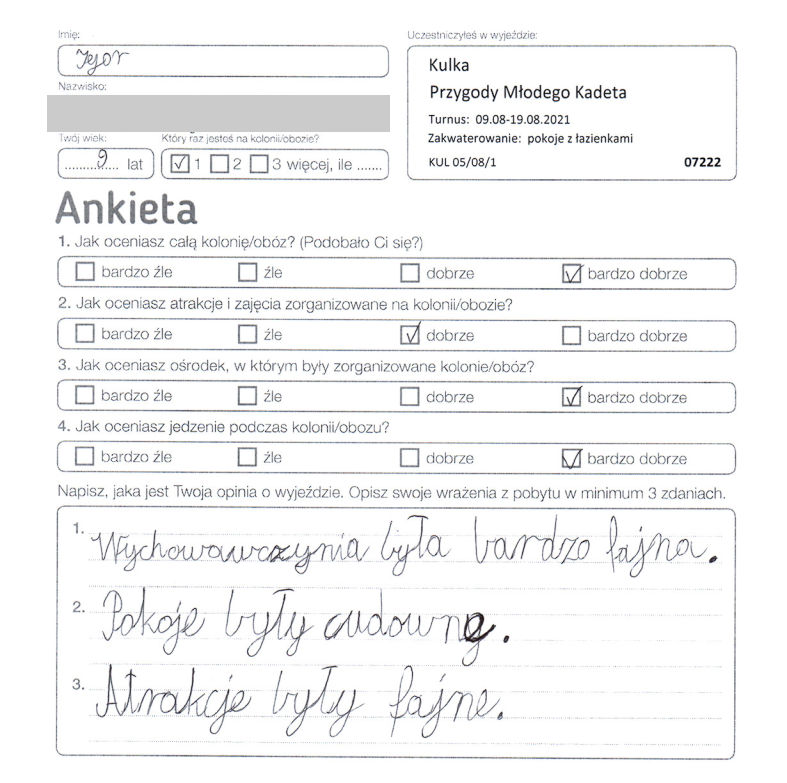 Imię:
Igor
Nazwisko:
Twój wiek:
9 lat
Który raz jesteś na kolonii/obozie?
1 2 3 więcej, ile .......
Uczestniczyłeś w wyjeździe:
Kulka
Przygody Młodego Kadeta
Turnus: 09.08-19.08.2021
Zakwaterowanie: pokoje z łazienkami
KUL 05/08/1 07222
Ankieta
1. Jak oceniasz całą kolonię/obóz? (Podobało Ci się?)
bardzo źle źle dobrze bardzo dobrze
2. Jak oceniasz atrakcje i zajęcia zorganizowane na kolonii/obozie?
bardzo źle źle dobrze bardzo dobrze
3. Jak oceniasz ośrodek, w którym były zorganizowane kolonie/obóz?
bardzo źle źle dobrze bardzo dobrze
4. Jak oceniasz jedzenie podczas kolonii/obozu?
bardzo źle źle dobrze bardzo dobrze
Napisz, jaka jest Twoja opinia o wyjeździe. Opisz swoje wrażenia z pobytu w minimum 3 zdaniach.
1. Wychowawczynia była bardzo fajna.
2. Pokoje były cudowne.
3. Atrakcje były fajne.